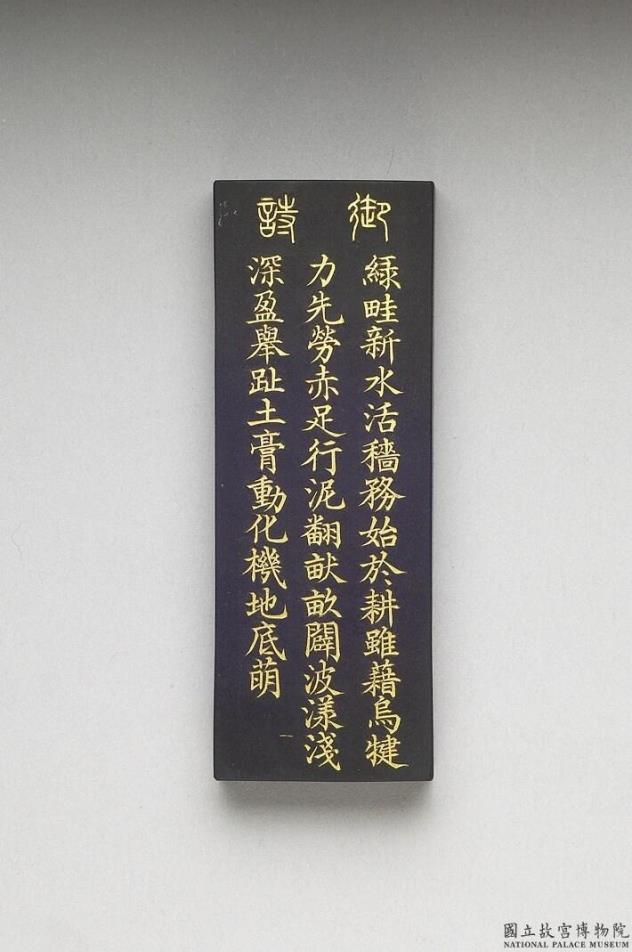 御詩
綠畦新水活穡務始於耕雖藉烏犍
力先勞赤足行泥翻畎畝闢波漾淺
深盈舉趾土膏動化機地底萌
國立故宮博物院
NATIONAL PALACE MUSEUM